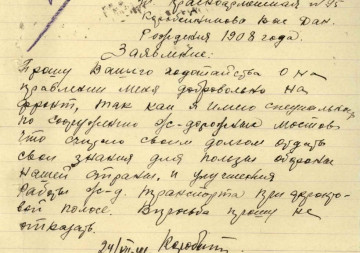 Красноармейская № 45
Рождения 1908 года.
Заявление:
Прошу Вашего ходатайства о на
правлении меня добровольно на
фронт, так как я имею специальн.
по сооружению ж-дорожных мостов
что считаю своим долгом отдать
свои знания для пользы обороны
нашей страны, и улучшения
работы ж-д. транспорта при фронто-
вой полосе. В просьбе прошу не
отказать.